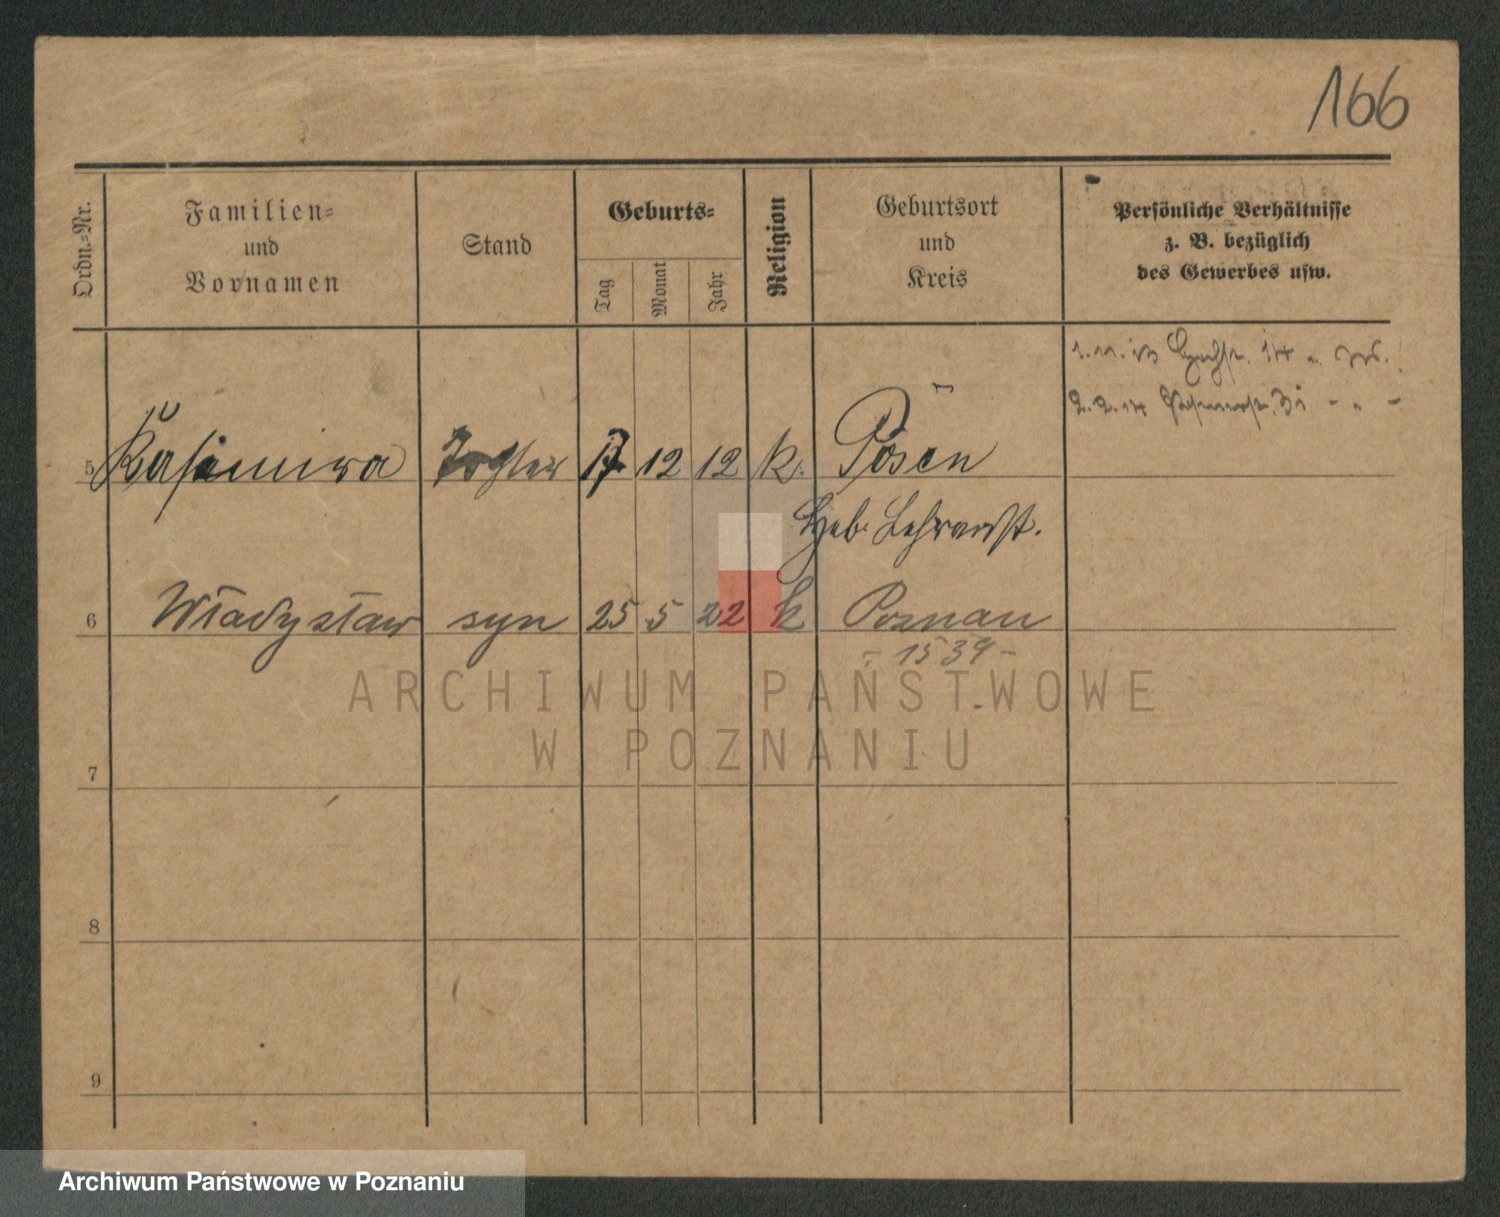 166
Ordn.-Nr.
Familien-
und
Vornamen
Stand
Geburts-
Tag
Monat
Jahr
Religion
Geburtsort
und
Kreis
Persönliche Verhältnisse
z. B. bezüglich
des Gewerbes usw.
1. 11. 13 14
2. 2. 14
5 Kasimira Tochter 17 12 12 k. Posen
Heb. Lehranst.
6 Władysław syn 25 5 22 k Poznan
- 1539 -
7
8
9
ARCHIWUM PAŃSTWOWE
W POZNANIU
Archiwum Państwowe w Poznaniu